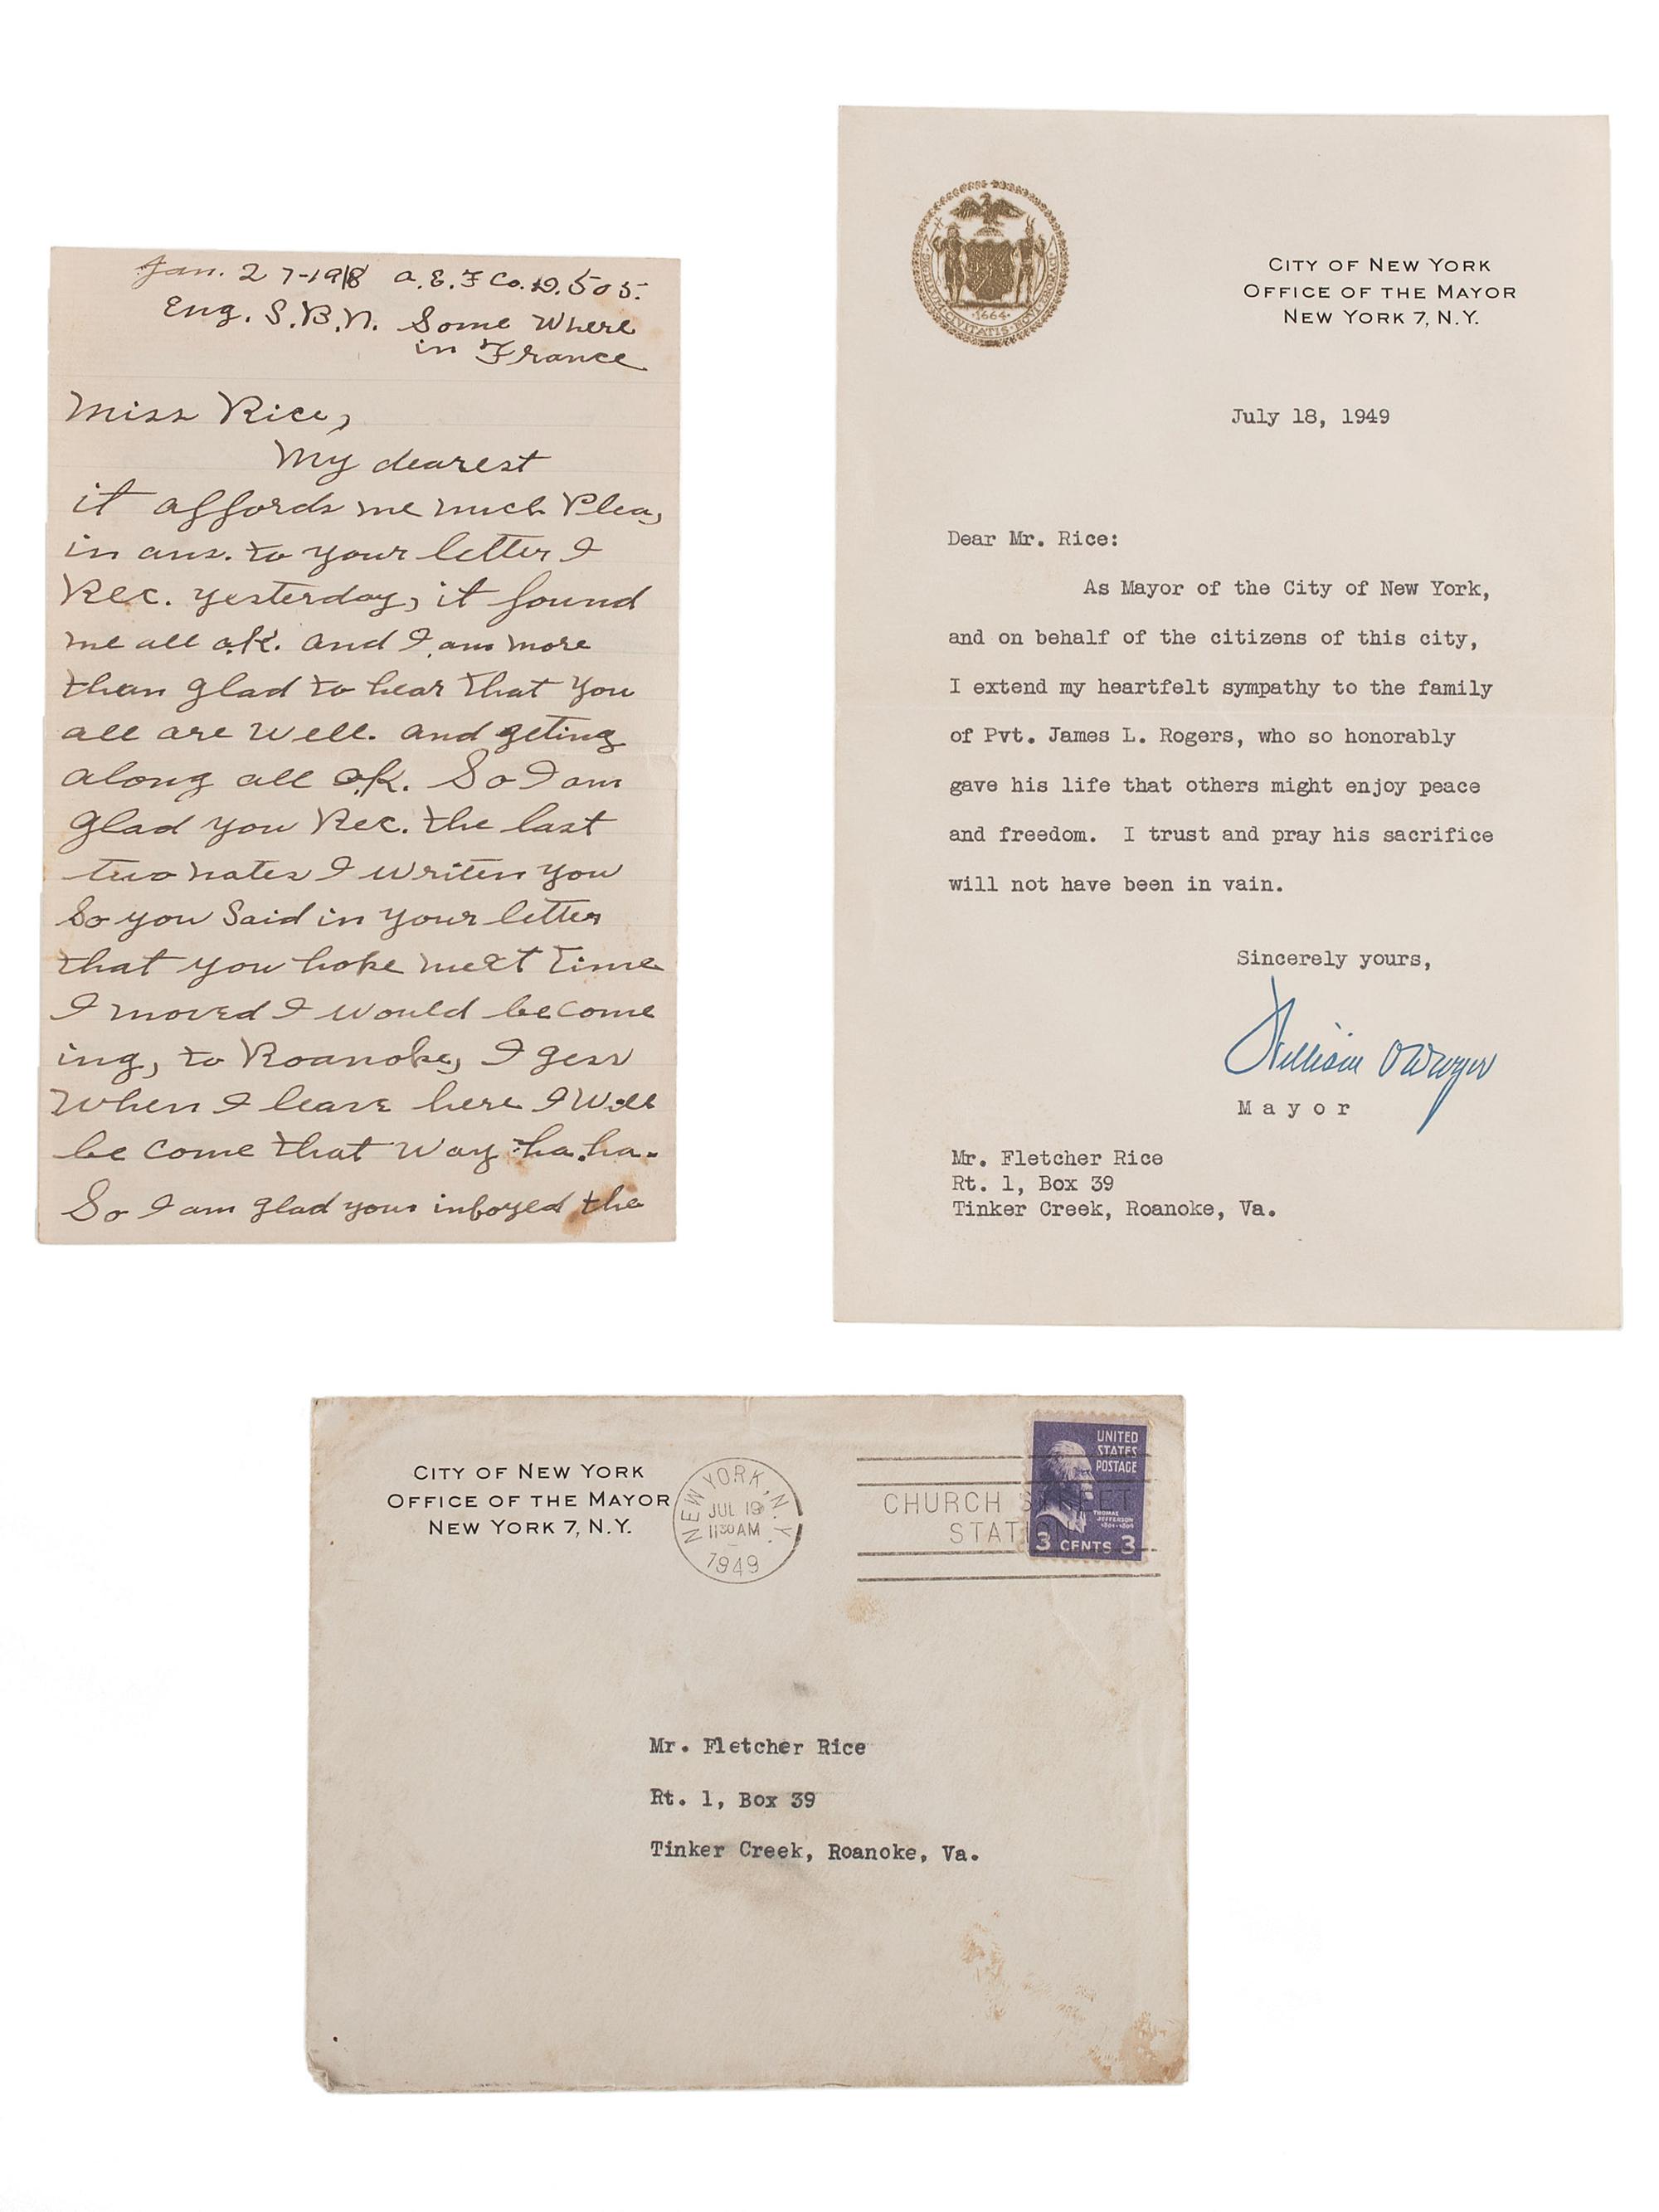 Jan. 27-1918 A.E.F Co. D. 505.
Eng. S.B.N. Some Where
in France
Miss Rice,
My dearest
it affords me much Plea,
in ans. to your letter I
Rec. yesterday, it found
me all o.k. and I am more
than glad to hear that you
all are well. and geting
along all o.k. So I am
glad you Rec. the last
two notes I writen you
So you Said in your letter
that you hope next time
I moved I would be come
ing, to Roanoke, I gess
When I leave here I Will
be come that way ha.ha.
So I am glad your the
CITY OF NEW YORK
OFFICE OF THE MAYOR
NEW YORK 7, N.Y.
SIGILLUM CIVITATIS NOVI EBORACI
1664
July 18, 1949
Dear Mr. Rice:
As Mayor of the City of New York,
and on behalf of the citizens of this city,
I extend my heartfelt sympathy to the family
of Pvt. James L. Rogers, who so honorably
gave his life that others might enjoy peace
and freedom. I trust and pray his sacrifice
will not have been in vain.
Sincerely yours,
William O'Dwyer
Mayor
Mr. Fletcher Rice
Rt. 1, Box 39
Tinker Creek, Roanoke, Va.
CITY OF NEW YORK
OFFICE OF THE MAYOR
NEW YORK 7, N.Y.
NEW YORK, N.Y.
JUL 19
11 30 AM
1949
CHURCH STREET
STATION
UNITED
STATES
POSTAGE
THOMAS
JEFFERSON
1801-1809
3 CENTS 3
Mr. Fletcher Rice
Rt. 1, Box 39
Tinker Creek, Roanoke, Va.